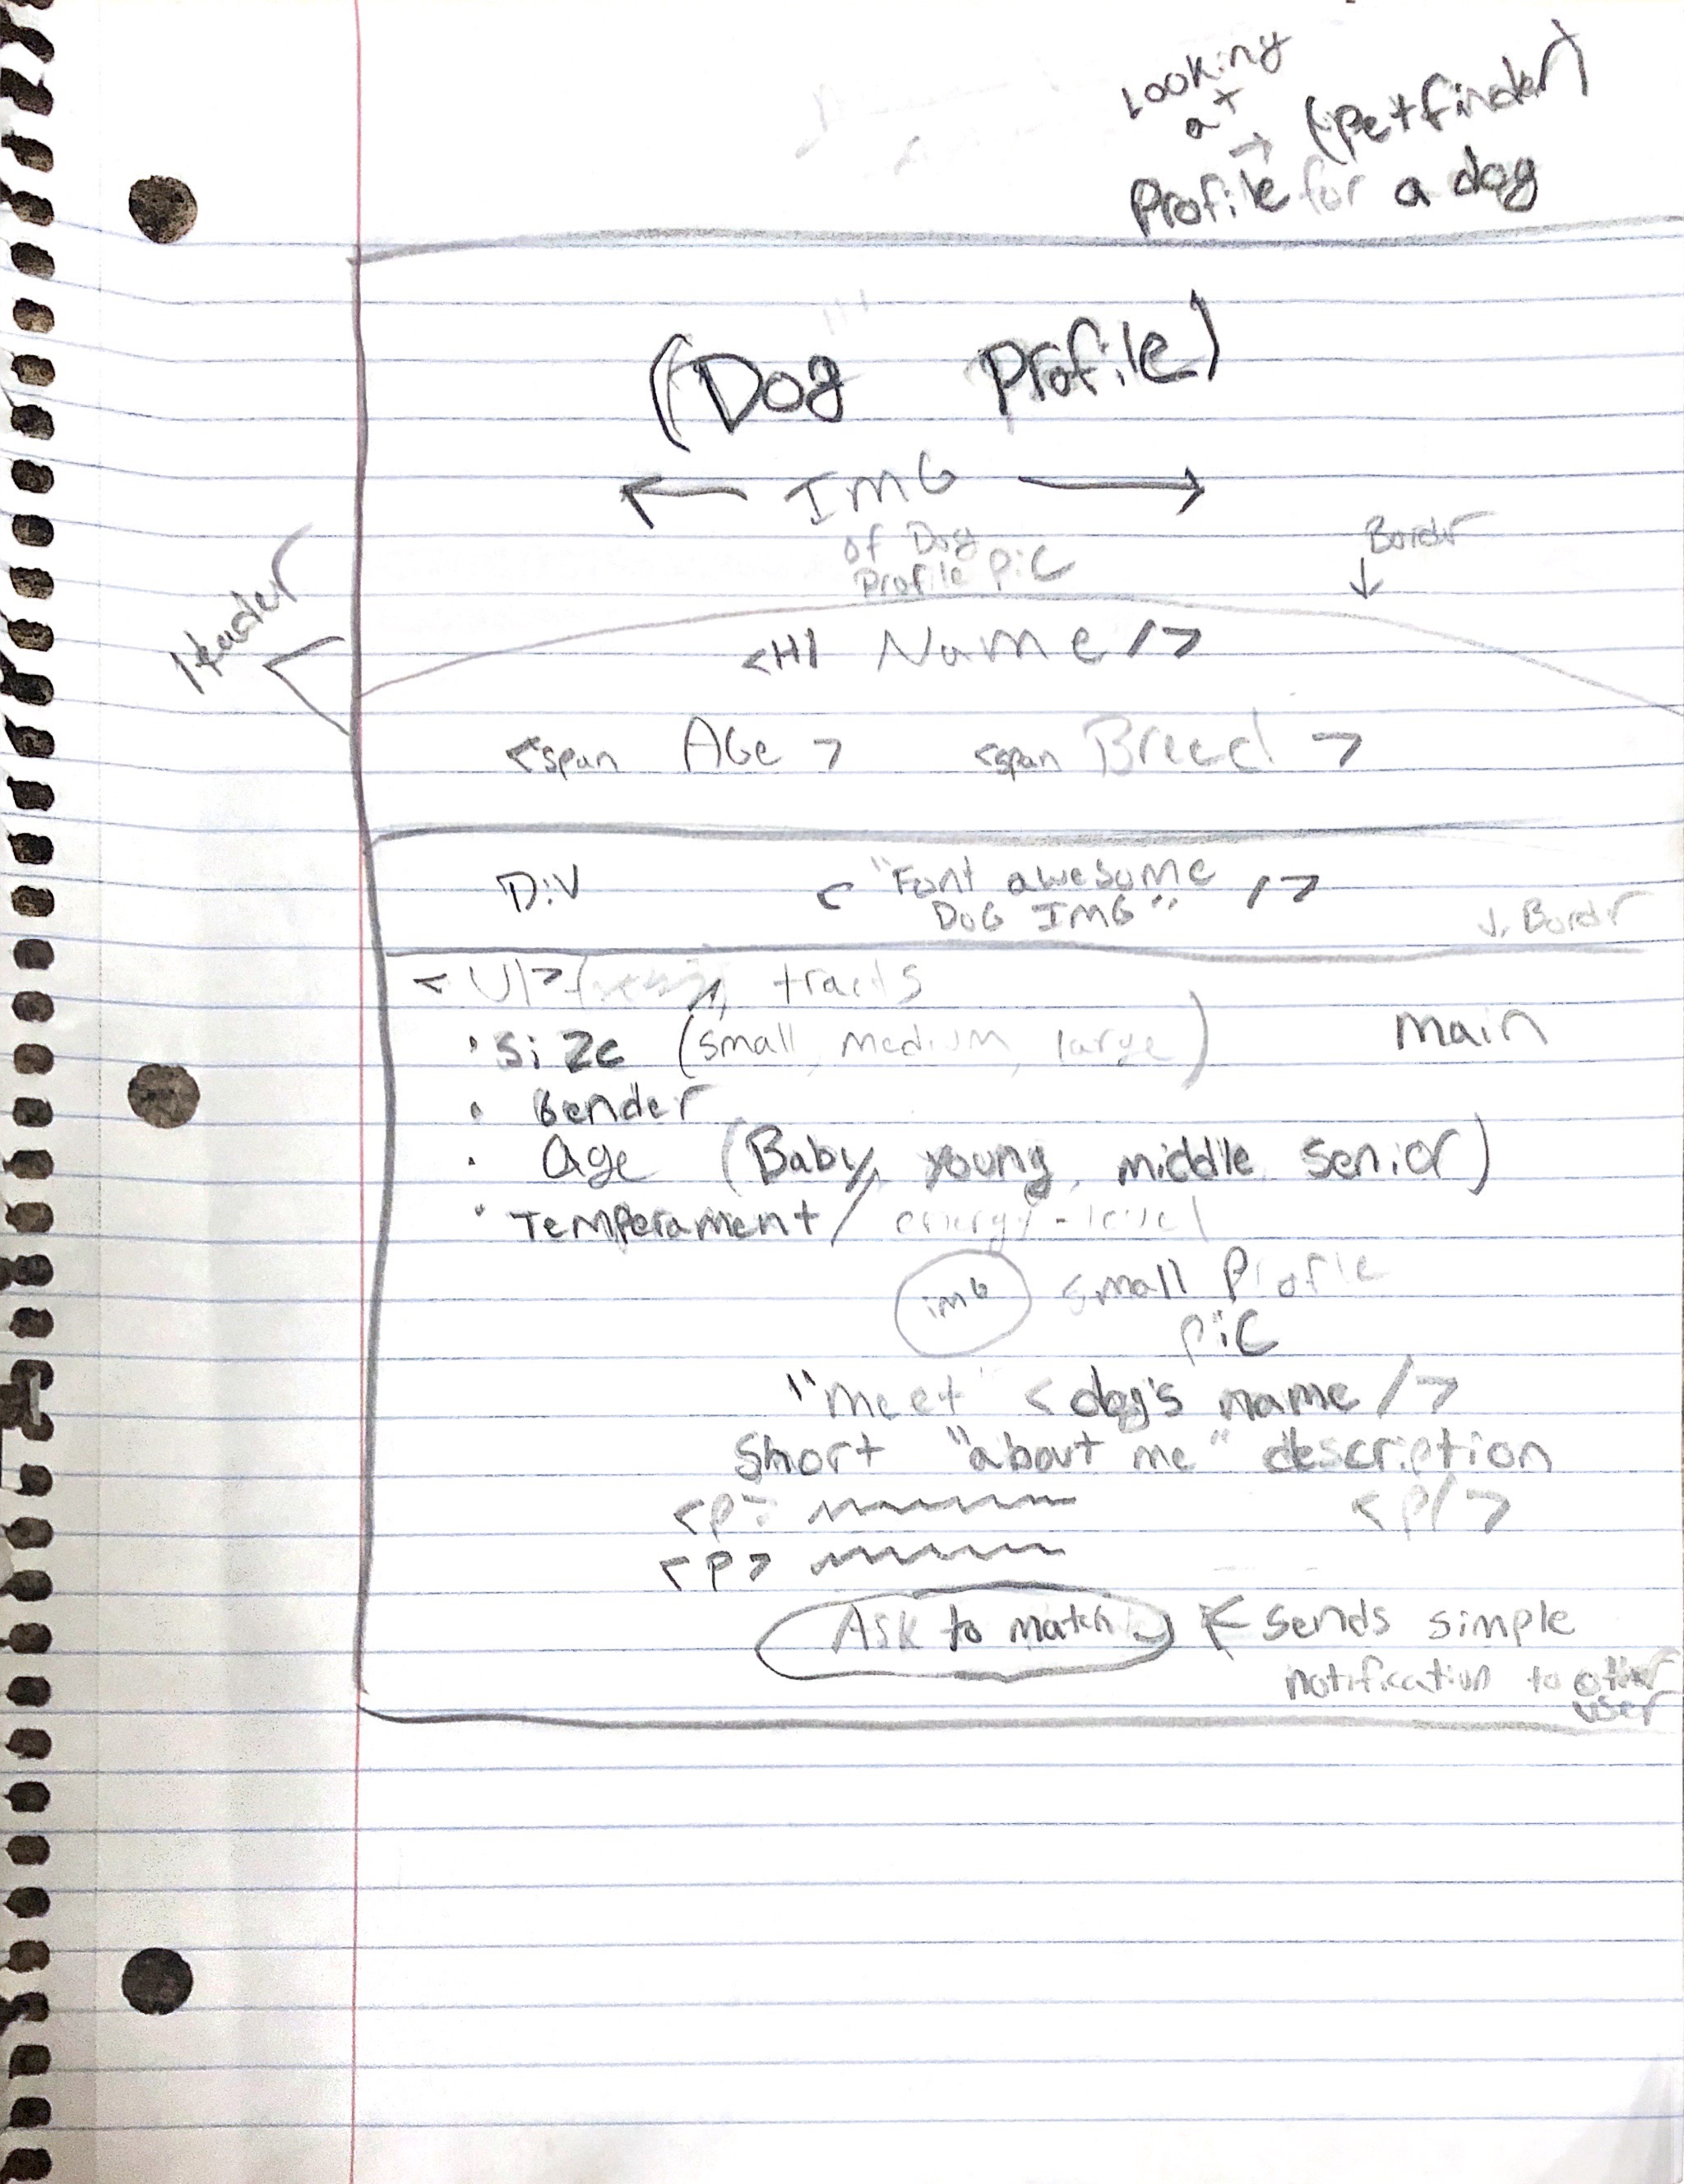 Looking
at
→ (petfinder)
Profile for a dog
(Dog Profile)
← IMG →
of Dog
Profile pic
Border
↓
Header
<H1 Name />
<span Age > <span Breed >
Div < "Font awesome
DOG IMG" />
↓ Border
<Ul> traits
main
• Size (small, medium, large)
• Gender
• Age (Baby, young, middle, senior)
• Temperament / energy-level
img small Profile
pic
"meet" <dog's name />
Short "about me" description
<p> <p/>
<p>
Ask to match ← sends simple
notification to other
user